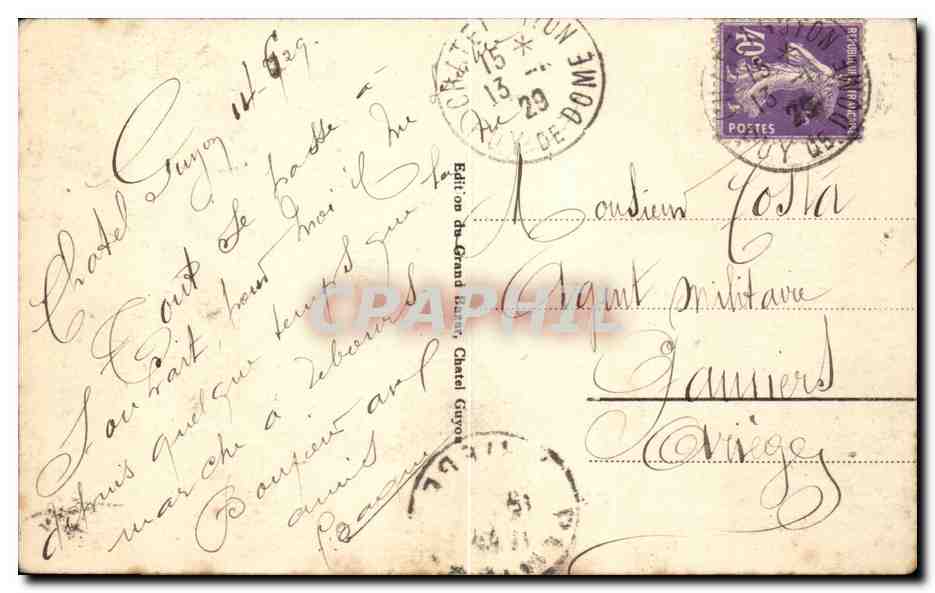 Châtel Guyon 14-6 29.
Tout se passe à
Souhait, pour moi il
depuis quelque temps que la
marche à rebours
Bonjour aux
amis
CHATEL GUYON
15 *
13 -
29
PUY-DE-DOME
REPUBLIQUE FRANCAISE
40
POSTES
GUYON
13
29
PUY DE DOME
Edition du Grand Bazar, Chatel Guyon
CPAPHIL
Monsieur Costa
Agent Militaire
Pamiers
Ariège